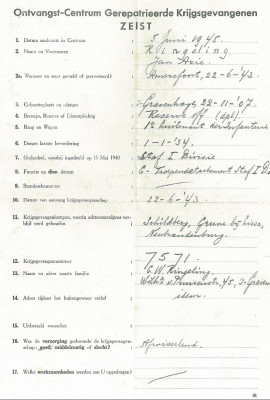 Ontvangst-Centrum Gerepatrieerde Krijgsgevangenen
ZEIST
1. Datum aankomst in Centrum 5 Juni 1945.
2. Naam en Voornamen Ringeling
Jan Arie.
2a. Wanneer en waar gemeld of gearresteerd? Amersfoort, 22-6-'43.
3. Geboorteplaats en -datum 's-Gravenhage, 22-11-'07.
4. Beroep, Reserve of Dienstplichtig Reserve off.
5. Rang en Wapen 1e luitenant der Infanterie
6. Datum laatste bevordering 1-1-'34.
7. Onderdeel, waarbij ingedeeld op 15 Mei 1940 Staf I Divisie
8. Functie op dien datum C-Troependetachement Staf I
9. Stamboeknummer
10. Datum van aanvang krijgsgevangenschap 22-6-'43.
11. Krijgsgevangenkampen, waarin achtereenvolgens verblijf werd gehouden Schildberg, Grune bij Lissa,
Neubrandenburg.
12. Krijgsgevangennummer 7571.
13. Naam en adres naaste familie Ringeling.
14. Adres tijdens het buitengewoon verlof idem.
15. Uitbetaald voorschot
16. Was de verzorging gedurende de krijgsgevangenschap goed, middelmatig of slecht? Afwisselend.
17. Welke werkzaamheden werden aan U opgedragen?